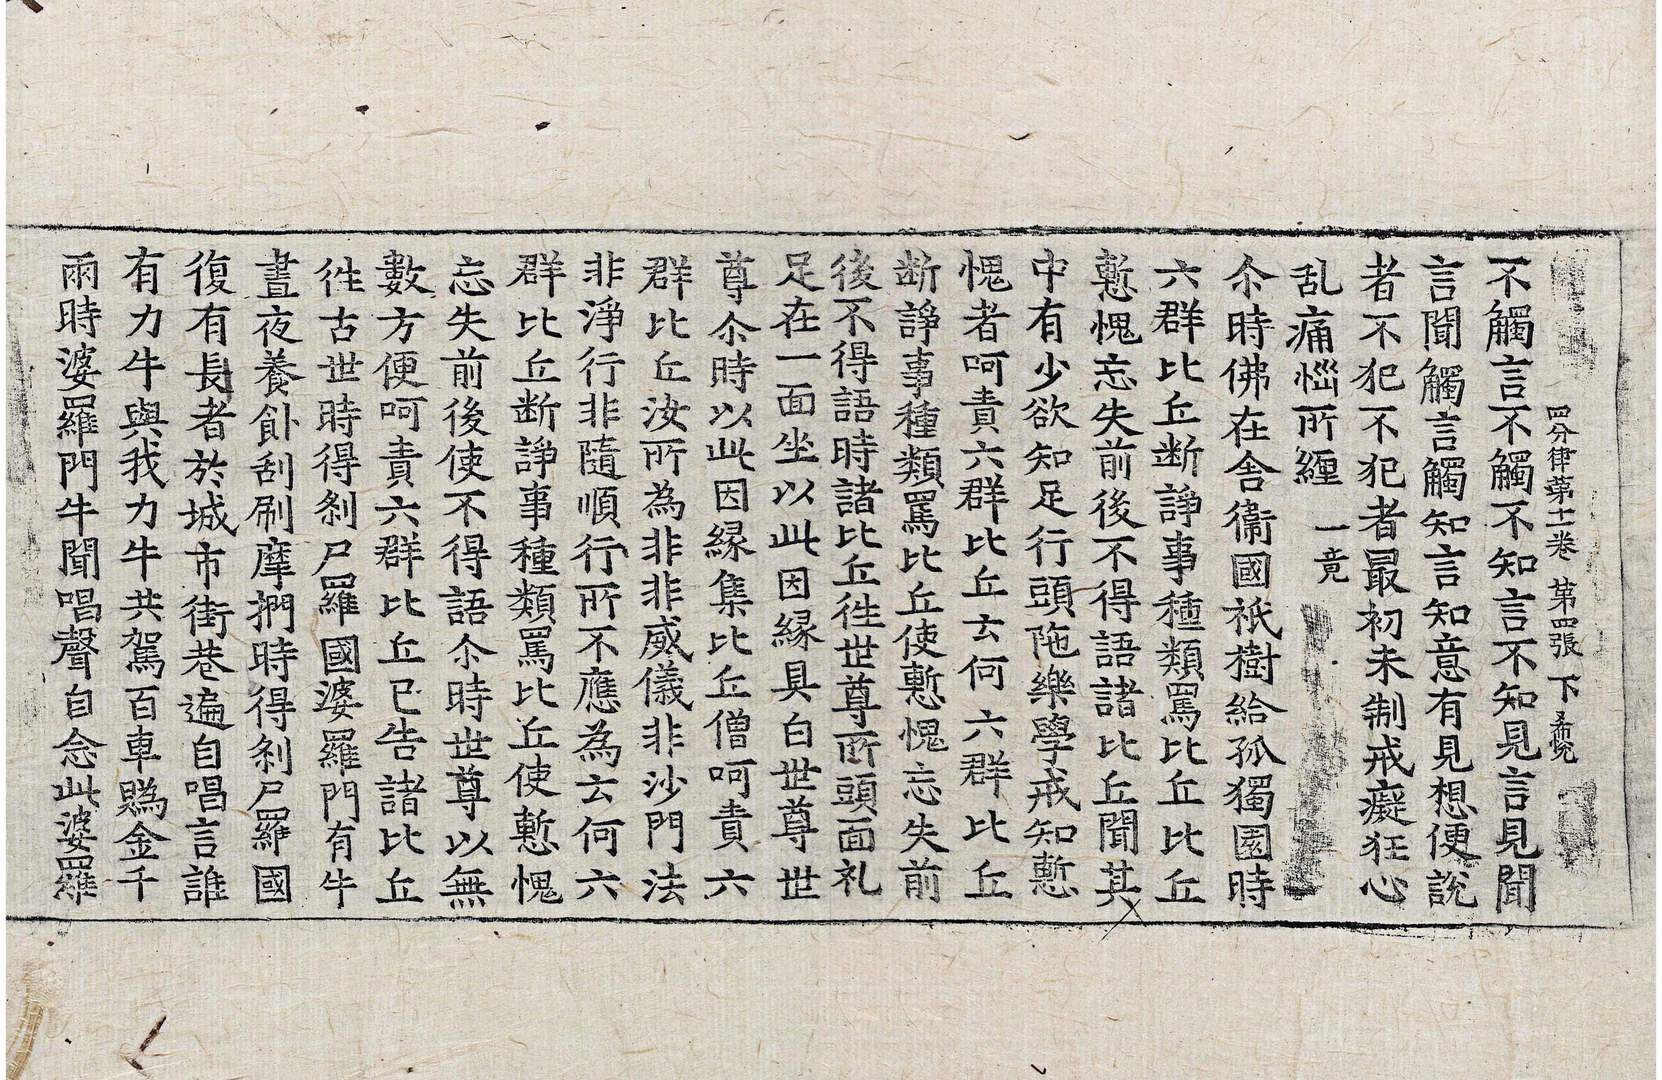 四分律第十一卷 第四張 下
不觸言不觸不知言不知見言見聞
言聞觸言觸知言知意有見想便說
者不犯不犯者最初未制戒癡狂心
乱痛惱所纏 一竟
尒時佛在舍衞國祇樹給孤獨園時
六群比丘断諍事種類罵比丘比丘
慙愧忘失前後不得語諸比丘聞其
中有少欲知足行頭陁樂學戒知慙
愧者呵責六群比丘云何六群比丘
断諍事種類罵比丘使慙愧忘失前
後不得語時諸比丘徃世尊所頭面礼
足在一面坐以此因緣具白世尊世
尊尒時以此因緣集比丘僧呵責六
群比丘汝所為非非威儀非沙門法
非淨行非隨順行所不應為云何六
群比丘断諍事種類罵比丘使慙愧
忘失前後使不得語尒時世尊以無
數方便呵責六群比丘已告諸比丘
徃古世時得剎尸羅國婆羅門有牛
晝夜養飤刮刷摩捫時得剎尸羅國
復有長者於城市街巷遍自唱言誰
有力牛與我力牛共駕百車賭金千
兩時婆羅門牛聞唱聲自念此婆羅